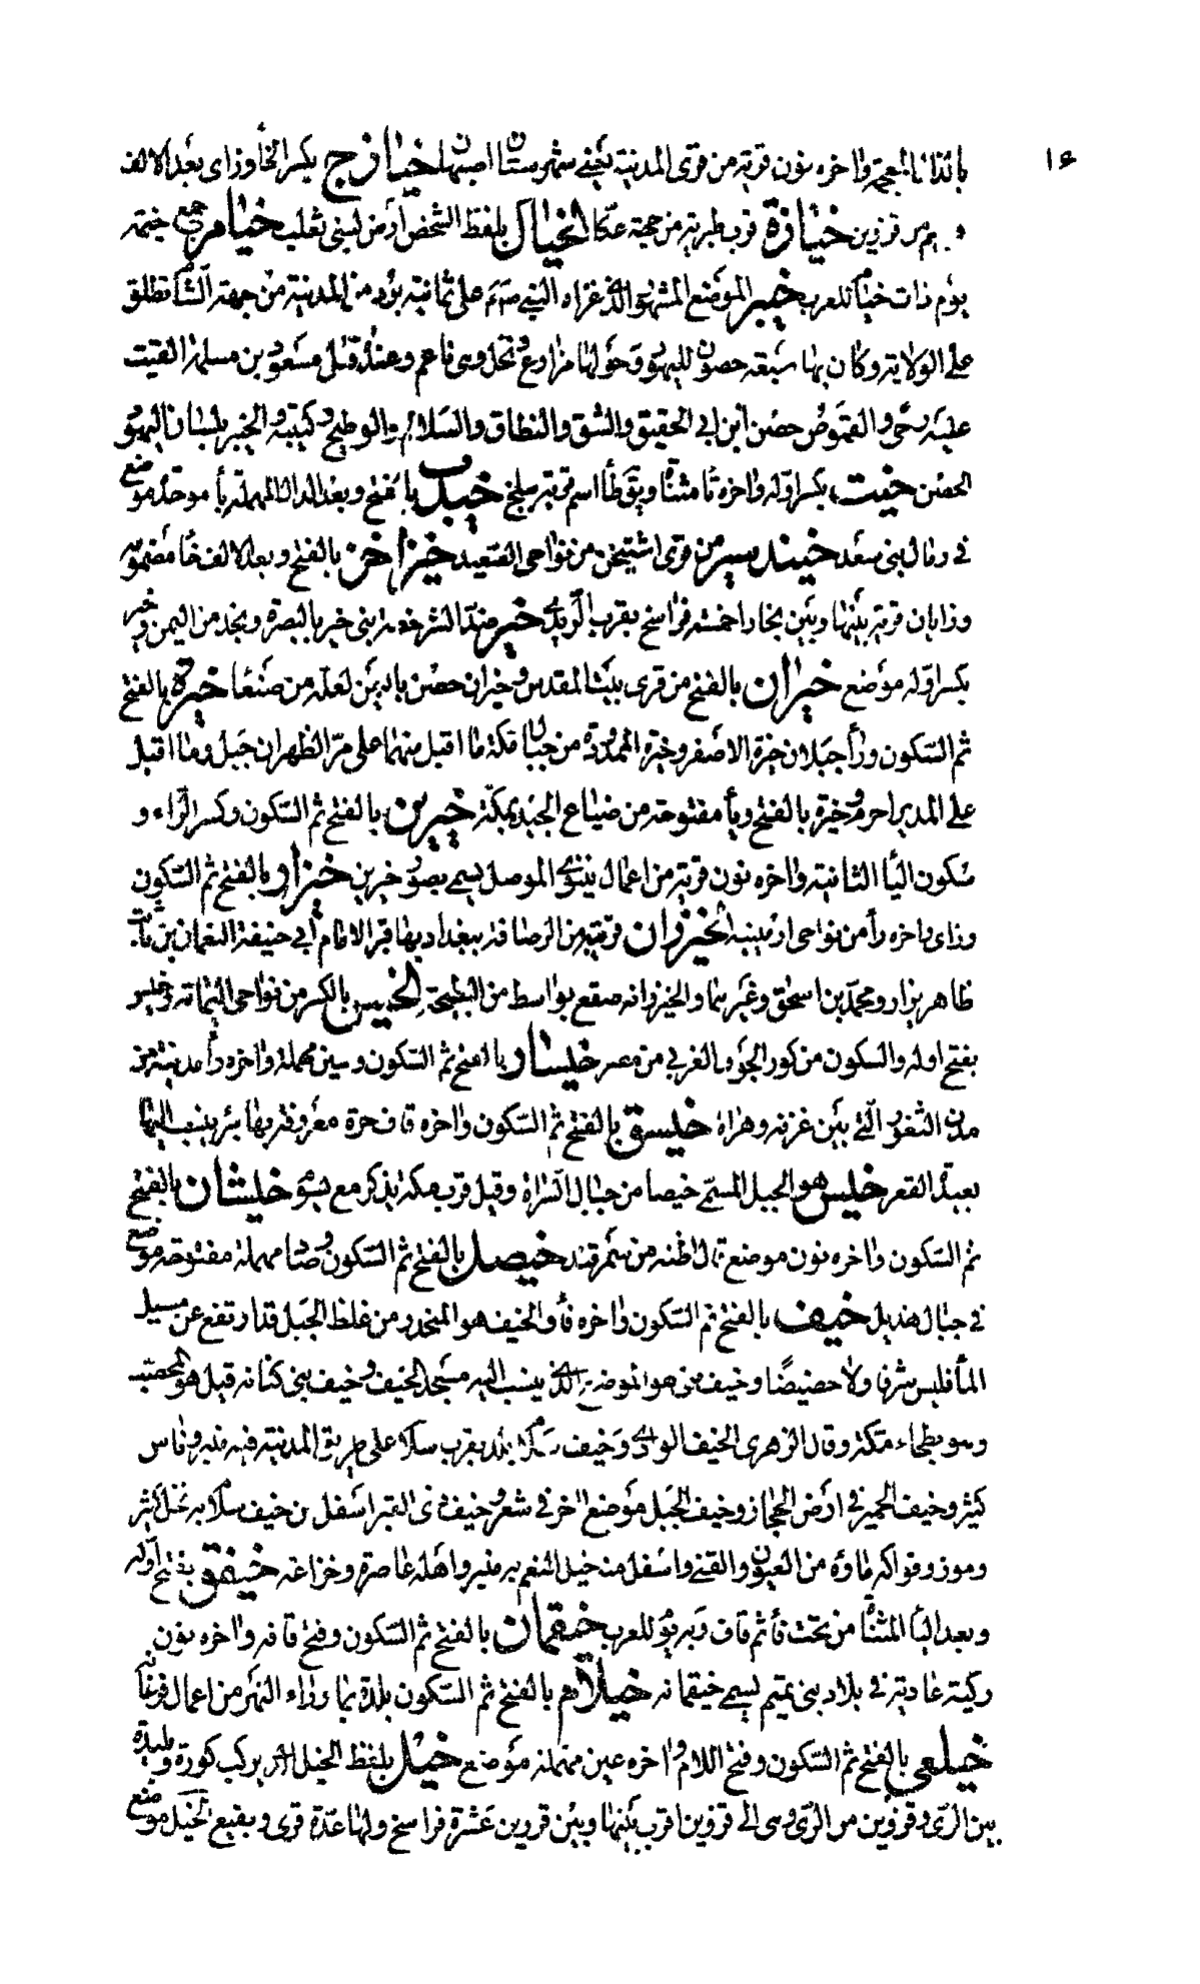 ١٤
بالذال المعجمة واخره نون قرية من قرى المدينة يعني شهرستان اصبهان خيازج بكسر الخا وزاى بعد الالف
قزوين خيازة قرب طبرية من جهة عكا الخيال بلفظ الشخص ارض لبني تغلب خيام جمع خيمة
يوم ذات خيام للعرب خيبر الموضع المشهور الذى غزاه النبي صلعم على ثمانية برد من المدينة من جهة الشام تطلق
على الولاية وكان بها سبعة حصون لليهود وحولها مزارع ونخل وهى ناعم وعنده قتل مسعود بن مسلمة القيت
عليه رحى والقموص حصن ابن ابى الحقيق والشق والنطاق والسلالم والوطيح وكتيبة والخيبر بلسان اليهود
الحصن خيت بكسر اوله واخره تا مثناة ويقال اسم قرية ببلخ خيدب بالفتح وبعد الدال المهملة بأ موحدة موضع
فى رمال بنى سعد خيند يسير من قرى اشتيخن من نواحى الصغد خيزاخز بالفتح وبعد الالف خا مضمومة
وزايان قرية بينها وبين بخارا خمسة فراسخ بقرب الزندنى خير ضد الشر خطة بنى خير بالبصرة وبجند من اليمن وخير
بكسر اوله موضع خيران بالفتح من قرى بيت المقدس وخيران حصن باليمن لعله من صنعا خيرة بالفتح
ثم السكون ورأ جبلان خيرة الاصفر وخيرة الممدرة من جبال مكة ما اقبل منهما على مر الظهران حبل وما اقبل
على المديرا حرم وخيرة بالفتح ويأ مفتوحة من ضياع الجند بمكة خيرين بالفتح ثم السكون وكسر الراء و
سكون اليأ الثانية واخره نون قرية من اعمال نينوى الموصل يسمى بصور خرين خيزار بالفتح ثم السكون
وزاى واخره رأ من نواحى ارمينية الخيزران قرية من الرصافة ببغداد بها قبر الامام ابى حنيفة النعمان بن ثابت
ظاهر يزار ومحمد بن اسحاق وغيرهما والخيزرانه صقع بواسط من البطيحة الخيس بالكسر من نواحى اليمامة وخيس
بفتح اوله والسكون من كور الجوف الغربى من مصر خيسار بالفتح ثم السكون وسين مهملة واخره رأ مدينة من
مدن الثغور التى بين غزنة وهراة خيسق بالفتح ثم السكون واخره قاف حرة معروفة بها بئر ينسب اليها
بعيدة القعر خيس هو الجبل المسمى خيصا من جبال السراة وقيل قرب مكة يذكر مع يسوم خيشان بالفتح
ثم السكون واخره نون موضع قال اظنه من سمرقند خيصل بالفتح ثم السكون وصاد مهملة مفتوحة موضع
فى جبال هذيل خيف بالفتح ثم السكون واخره فأ والخيف هو المنحدر من غلظ الجبل قد ارتفع عن مسيل
المأ فليس شرفا ولا حضيضًا وخيف منى هو الموضع الذى ينسب اليه مسجد الخيف وخيف بنى كنانه قيل هو المحصب
وهو بطحاء مكة وقال الزهرى الخيف الوادى وخيف سلام بلد بقرب سلام على طريق المدينة فيه منبر وناس
كثير وخيف الحمير فى ارض الحجاز وخيف الجبل موضع اخر فى شعر وخيف ذى القبر اسفل من خيف سلام به نخل كثير
وموز وفواكه ماؤه من العيون والقنى واسفل منه خيف النعم به منبر واهله غاضرة وخزاعة خيفق بفتح اوله
وبعد اليأ المثناة من تحت فأ ثم قاف للعرب خيقمان بالفتح ثم السكون وفتح قافه واخره نون
ركية عادية فى بلاد بنى تميم يسمى خيقمانه خيلام بالفتح ثم السكون بلدة بما وراء النهر من اعمال فرغانة
خيلع بالفتح ثم السكون وفتح اللام واخره عين مهملة موضع خيل بلفظ الخيل التى يركب كورة وبليدة
بين الرى وقزوين من الرى وهى الى قزوين اقرب بينها وبين قزوين عشرة فراسخ ولها عدة قرى وبقيع الخيل موضع